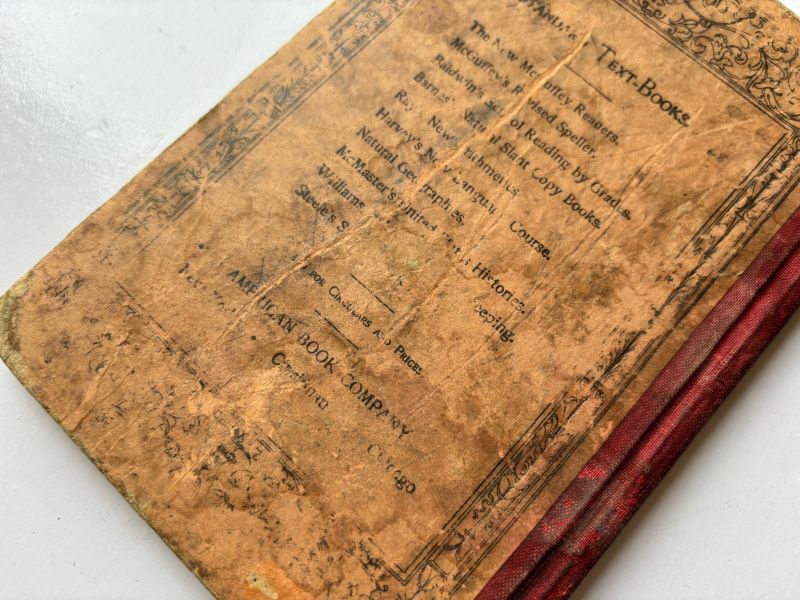 TEXT-BOOKS.
The New McGuffey Readers.
McGuffey's Revised Speller.
Baldwin's Reading by Grades.
Barnes' Natural Slant Copy Books.
Ray's New
Harvey's New Language Course.
Natural Geographies.
McMaster's United States Histories.
Williams
Steele's
FOR CIRCULARS AND PRICES
AMERICAN BOOK COMPANY
Cincinnati Chicago